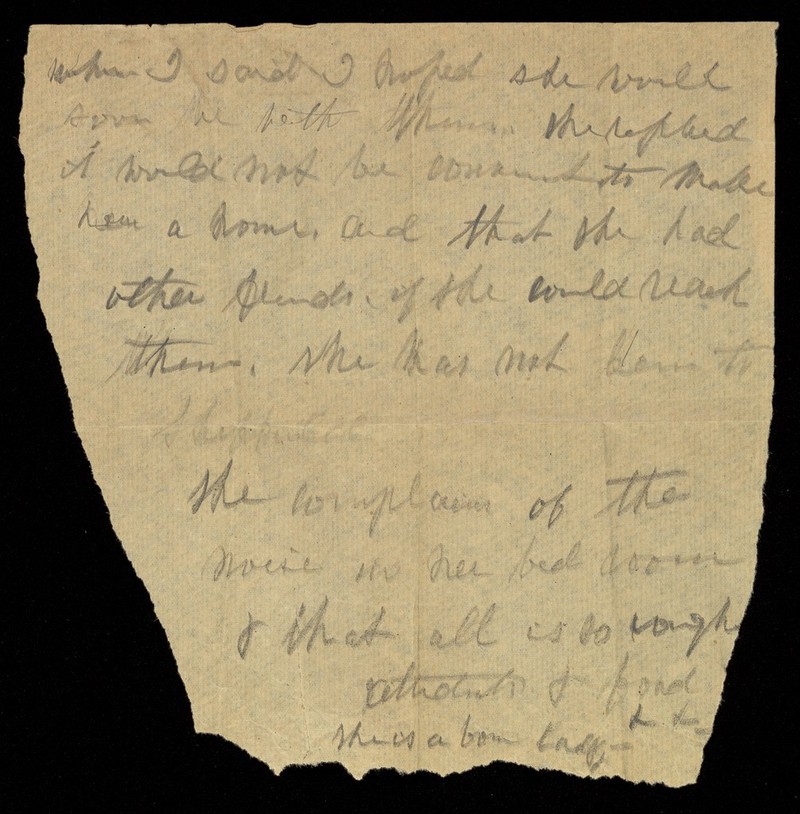 when I said I hoped she would
soon be with them, she replied
it would not be convenient to make
a home, and that she had
other friends, if she could reach
them, she has not been to

she complains of the
noise in her bed room
& that all is so rough
attendants & food
she is a born lady - & &-